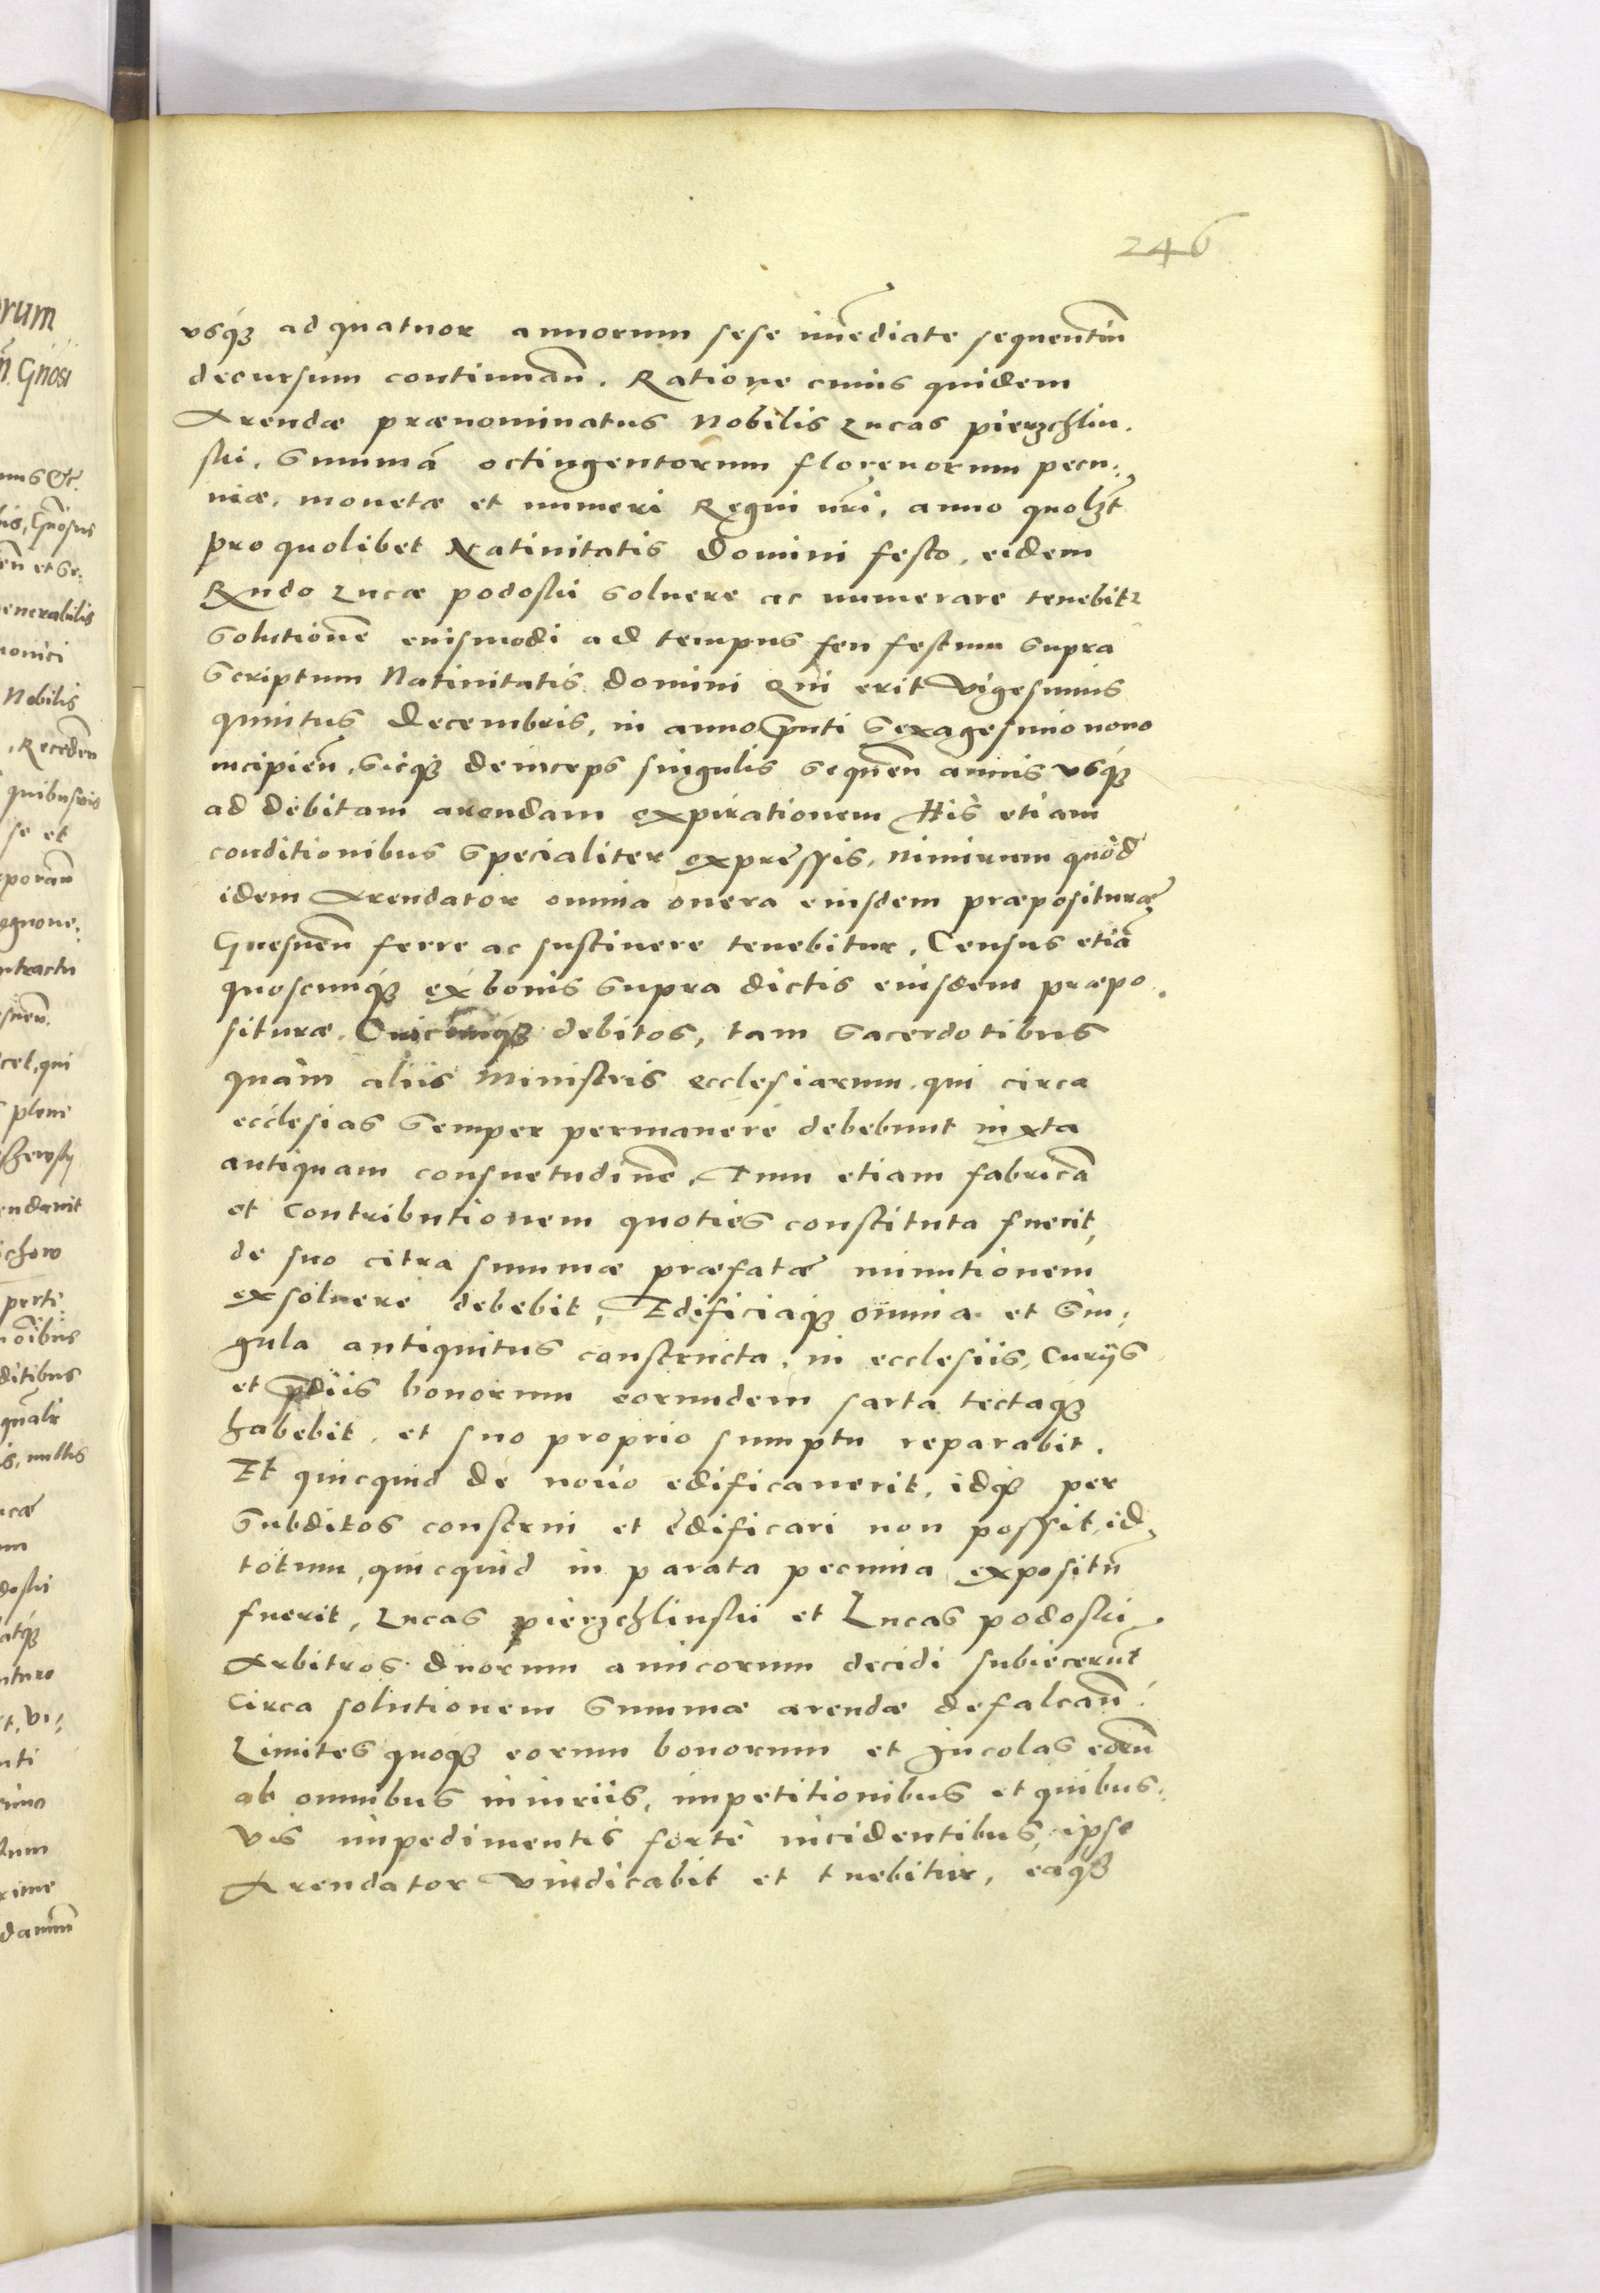 246
vsq́ꝫ ad quatuor annorum sese im̄ediate sequentiū
decursum continuan̄. Ratione cuius quidem
Arendæ prænominatus Nobilis Lucas pierzchlin.
ski, Summā octingentorum florenorum pecu:
niæ, monetæ et numeri Regni nr̄i, anno quolꝫt
pro quolibet Natiuitatis Domini festo, eidem
Rndo Lucæ podoski soluere ac numerare tenebitr
Solutionē euismodi ad tempus seu festum supra
Scriptum Natiuitatis Domini Qui erit Vigesimus
quintus Decembris, in anno Pnti Sexagesimo nono
incipien̄, Sicqꝫ deinceps singulis sequen̄ annis vsqꝫ
ad debitam arendam expirationem His etiam
conditionibus Specialiter expressis, nimirum quòd
idem Arendator omnia onera eiusdem præposituræ
Gnesnen̄ ferre ac sustinere tenebitur, Census etiā
quoscunqꝫ ex bonis supra dictis eiusdem præpo.
situræ. Cuicunqꝫ debitos, tam Sacerdotibus
quàm aliis Ministris ecclesiarum qui circa
ecclesias semper permanere debebunt iuxta
antiquam consuetudinē, Tum etiam fabricā
et Contributionem quoties constituta fuerit,
de suo citra summæ præfatæ minutionem
exsoluere debebit, Edificiaqꝫ omnia et Sin:
gula antiquitus constructa, in ecclesiis, Curijs
et p̄diis bonorum eorundem sarta tectaqꝫ
habebit, et suo proprio sumptu reparabit.
Et quicquid de nouo edificauerit, idqꝫ per
Subditos construi et edificari non possit, id
totum, quicquid in parata pecunia expositū
fuerit, Lucas pierzchlinski et Lucas podoski,
Arbitros duorum amicorum decidi subiecerūt
Circa solutionem Summæ arendæ defalcan̄.
Limites quoqꝫ eorum bonorum et Incolas eorū
ab omnibus iniuriis, impetitionibus et quibus:
vis impedimentis fortè incidentibus, ipse
Arendator vindicabit et tuebitur, eaqꝫ